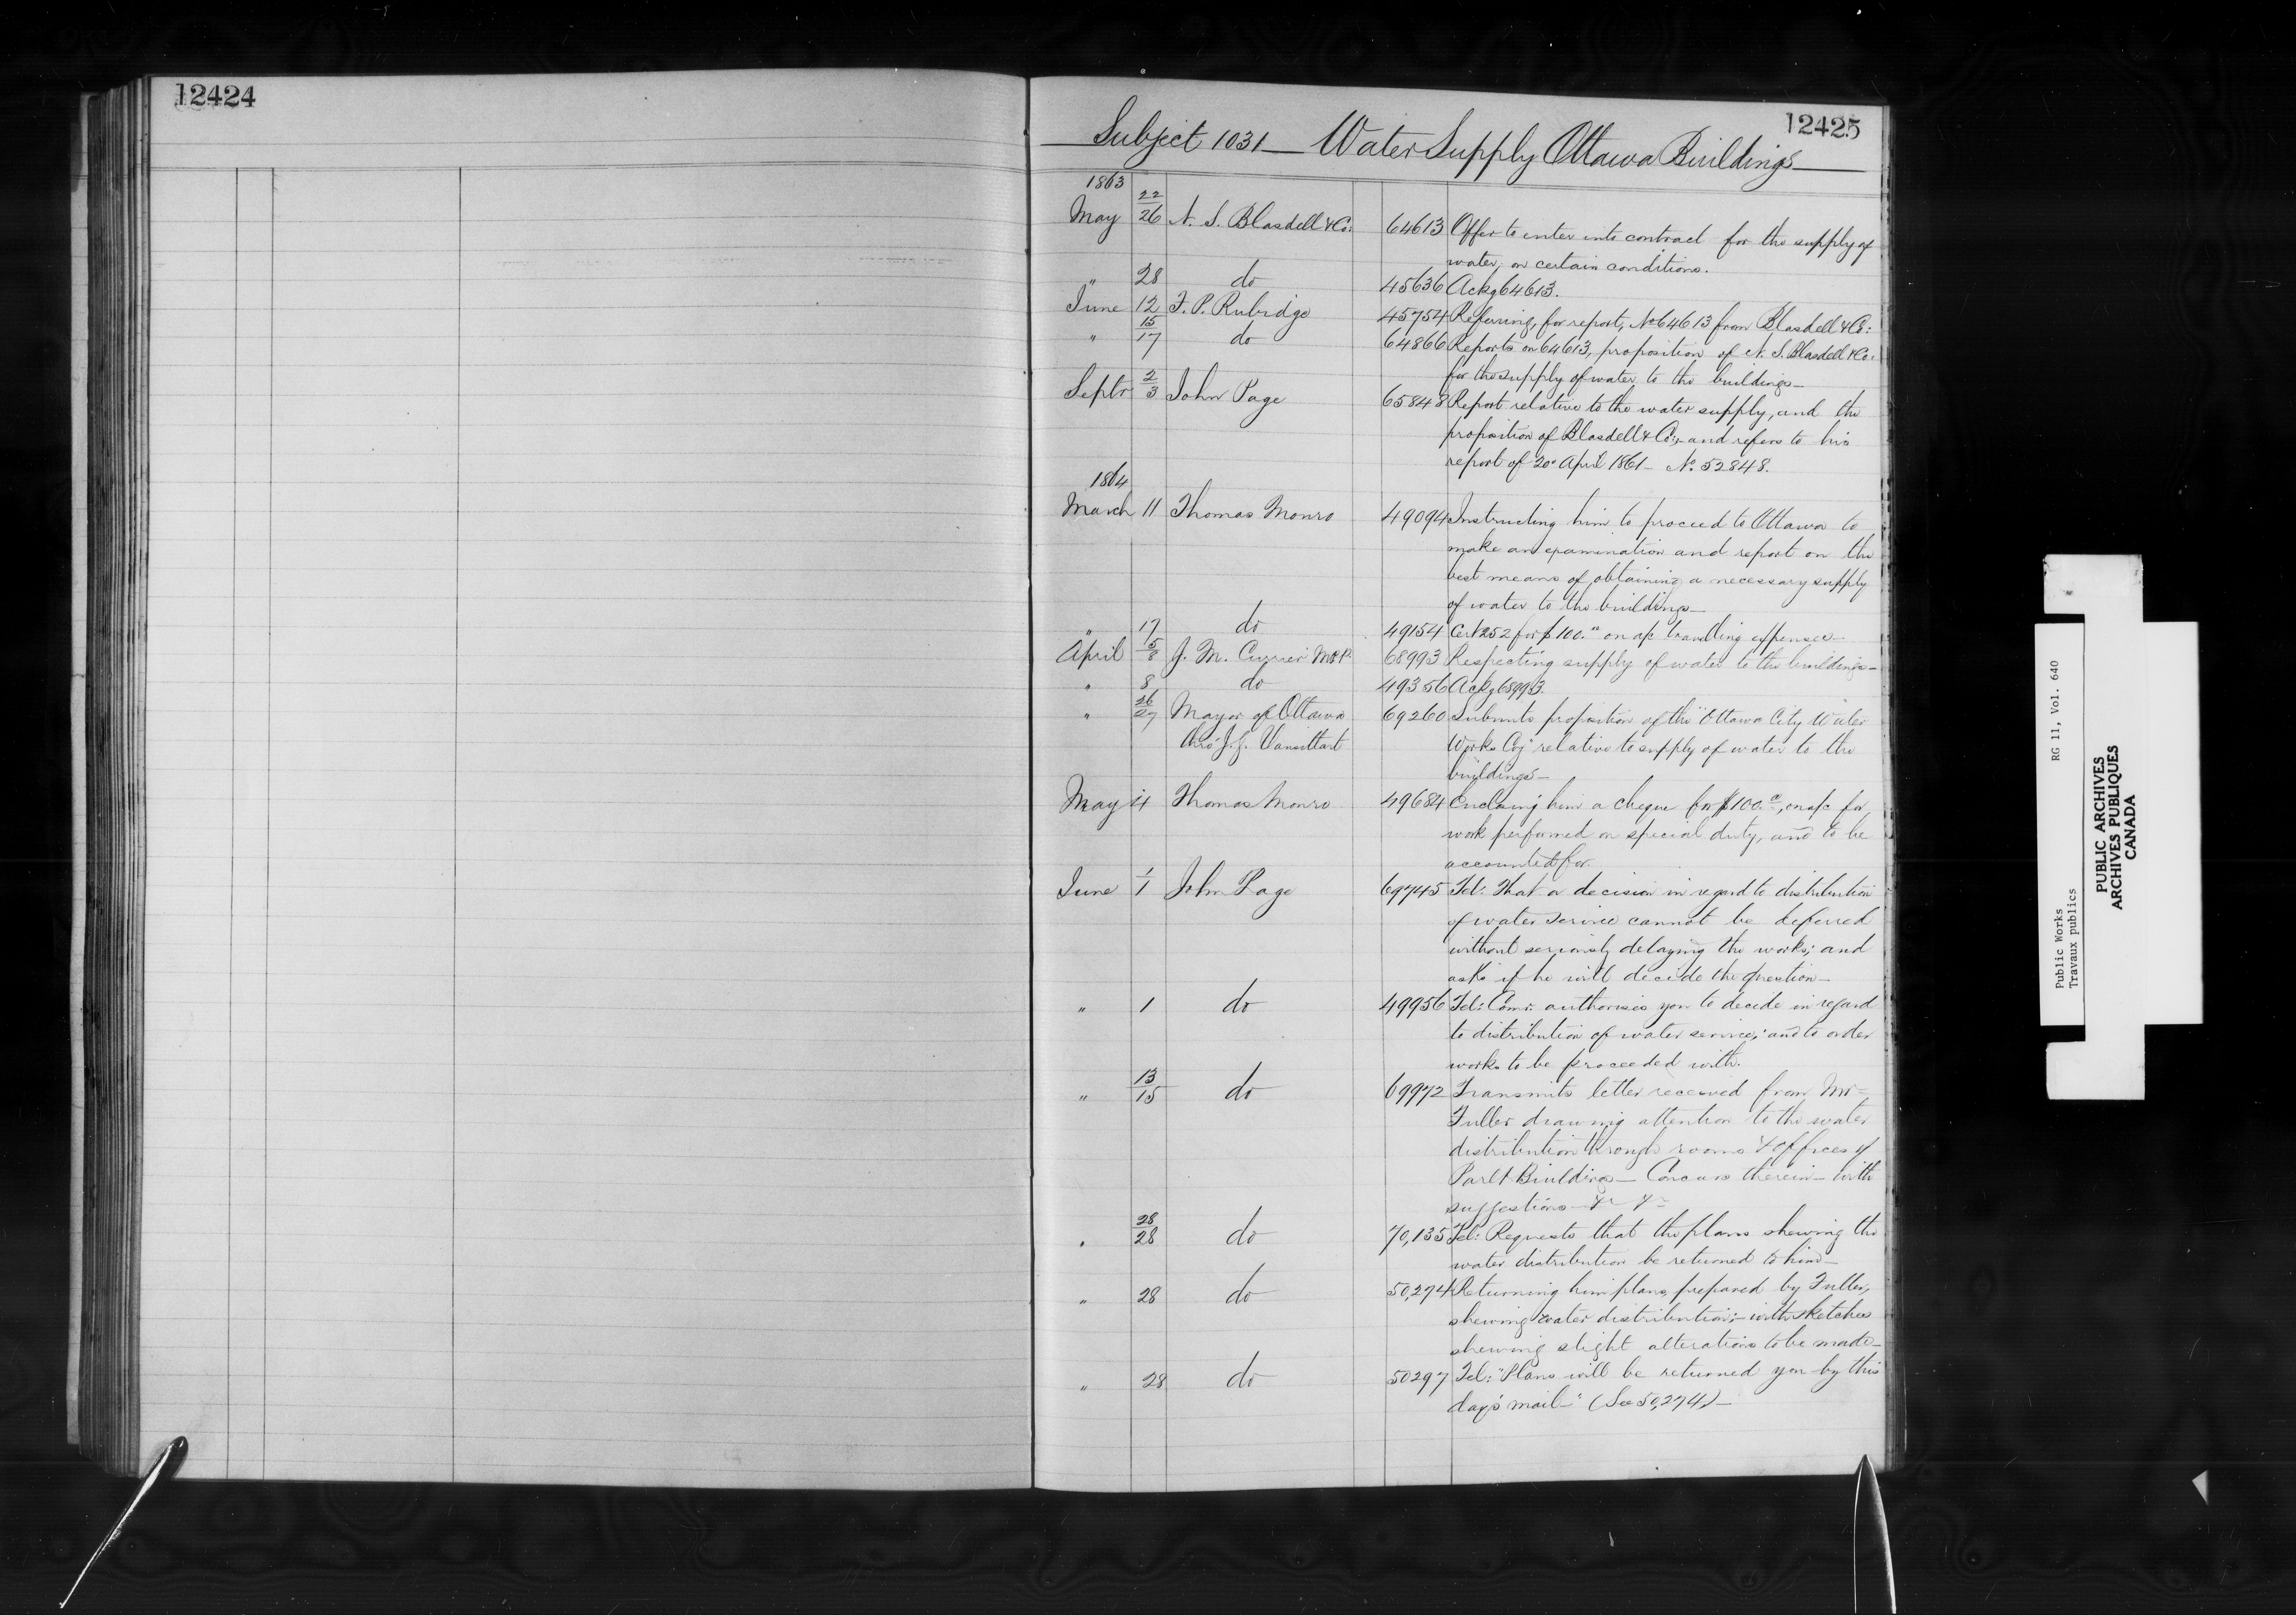 12424
12425
Subject 1031 — Water Supply Ottawa Buildings —
1863
May 22/26 N. S. Blasdell & Co: 64613 Offer to enter into contract for the supply of
water, on certain conditions.
" 28 do 45636 Ackg 64613.
June 12 F. P. Rubidge 45754 Referring, for report, No 64613 from Blasdell & Co:
" 15/17 do 64866 Reports on 64613, proposition of N. S. Blasdell & Co:
for the supply of water to the buildings —
Septr 2/3 John Page 65848 Report relative to the water supply, and the
proposition of Blasdell & Co:, and refers to his
report of 20" April 1861 — No. 52848.
1864
March 11 Thomas Monro 49094 Instructing him to proceed to Ottawa to
make an examination and report on the
best means of obtaining a necessary supply
of water to the buildings —
" 17 do 49154 Cert 252 for $100. on a/c travelling expenses —
April 5/8 J. M. Currier M.P.P. 68993 Respecting supply of water to the buildings —
" 8 do 49356 Ackg 68993.
" 26/27 Mayor of Ottawa 69260 Submits proposition of the "Ottawa City Water
thro' J. G. Vansittart Works Coy" relative to supply of water to the
buildings —
May 4 Thomas Monro 49684 Enclosing him a cheque for $100., on a/c for
work performed on special duty, and to be
accounted for.
June 1/1 John Page 69745 Tel: That a decision in regard to distribution
of water service cannot be deferred
without seriously delaying the works; and
asks if he will decide the question —
" 1 do 49956 Tel: Comr. authorises you to decide in regard
to distribution of water service; and to order
works to be proceeded with.
" 13/15 do 69972 Transmits letter received from Mr
Fuller drawing attention to the water
distribution through rooms & offices of
Parlt Buildings — Concurs therein — with
suggestions &c &c
" 28/28 do 70,135 Tel: Requests that the plans shewing the
water distribution be returned to him —
" 28 do 50,274 Returning him plans, prepared by Fuller,
shewing water distribution; — with sketches
shewing slight alterations to be made —
" 28 do 50297 Tel: "Plans will be returned you by this
day's mail —" (See 50,274) —
Public Works RG 11, Vol. 640
Travaux publics
PUBLIC ARCHIVES
ARCHIVES PUBLIQUES
CANADA